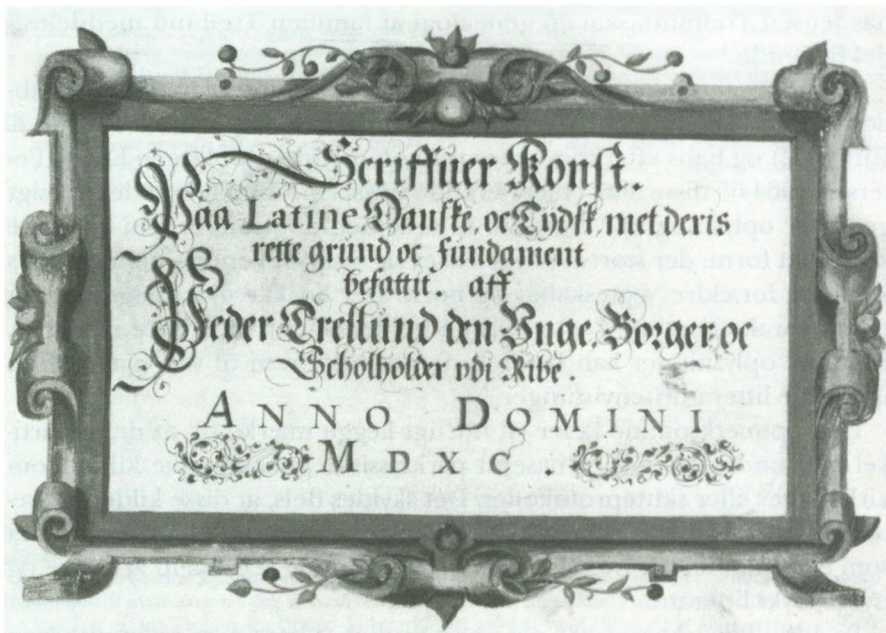 Scriffuer Konst.
Paa Latine Danske, oc Tydsk, met deris
rette grund oc fundament
befattit aff
Peder Trellund den Vnge, Borger, oc
Scholholder vdi Ribe
ANNO DOMINI
MDXC